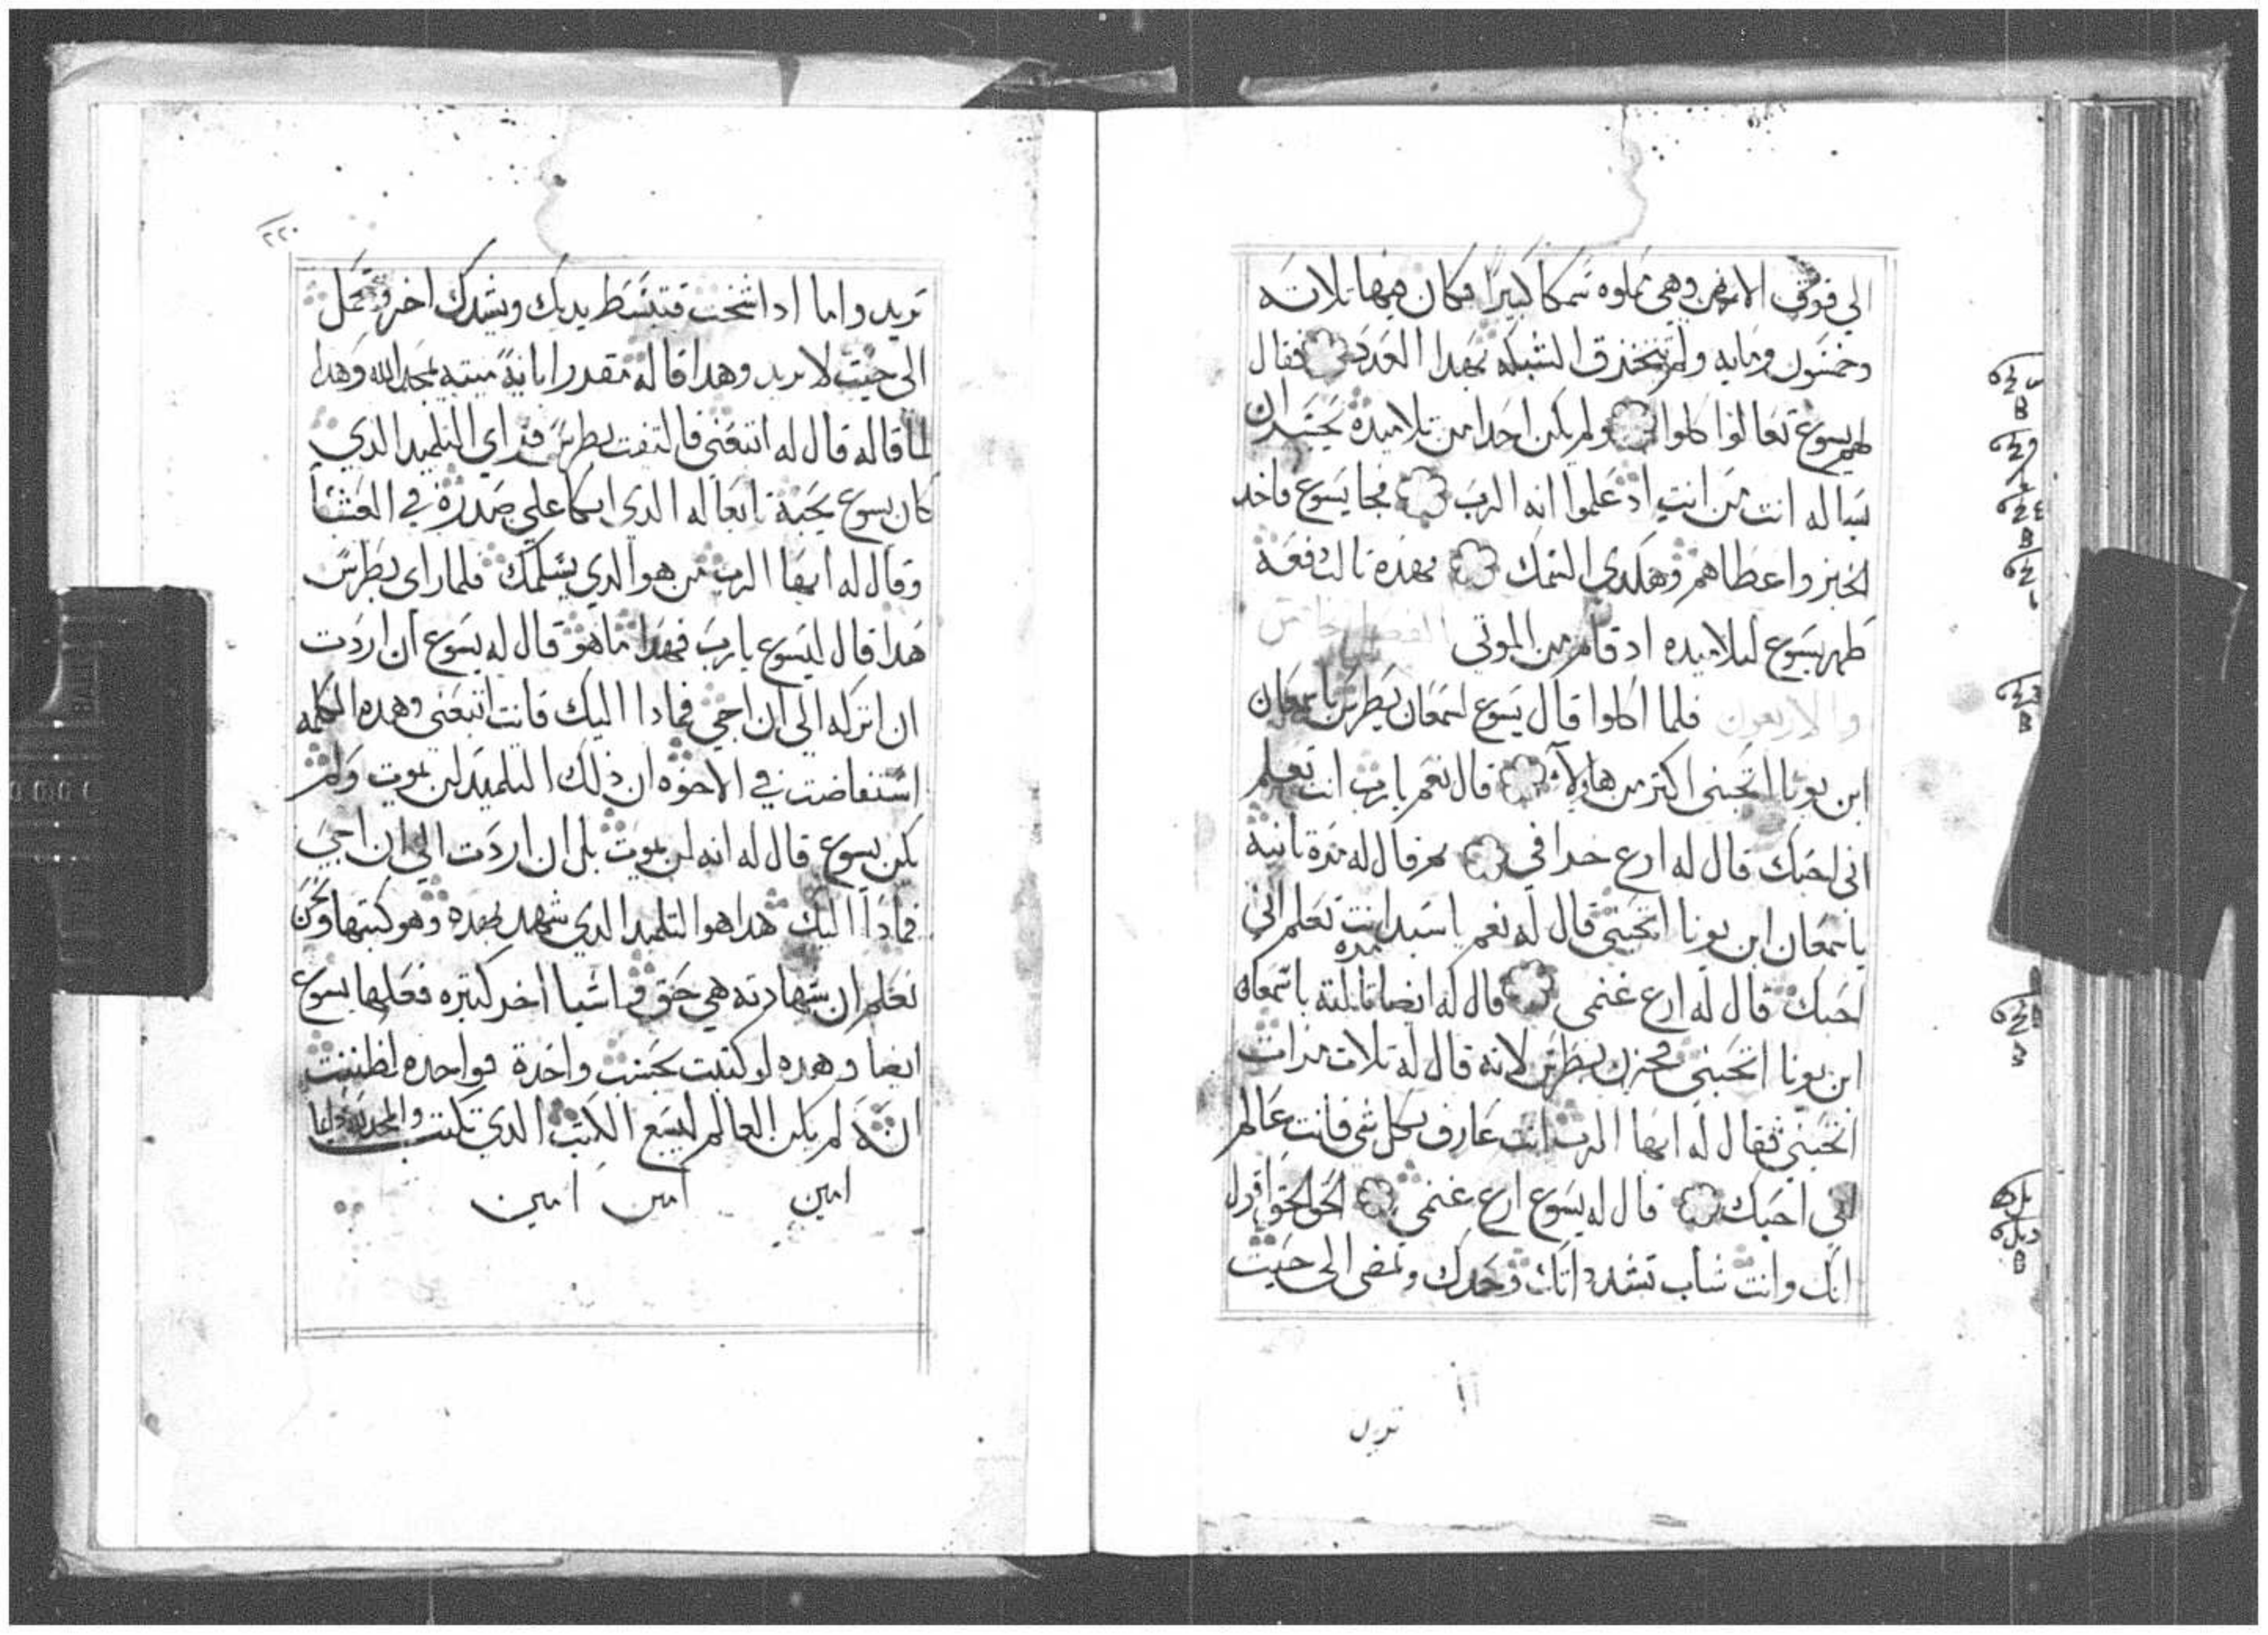 الي فوق الارض وهي مملوه سمكا كبيرا فكان فيها تلاته
وخمسون ومايه ولم تتخذق الشبكه بهدا العدد فقال
لهم يسوع تعالوا كلوا ولم يكن احدا من تلاميده يجسر ان
يساله انت من انت اد علموا انه الرب فجا يسوع فاخد
الخبز واعطاهم وهكدى السمك بهده تالت دفعه
ظهر يسوع لتلاميده اد قام من الموتي الفصل الخامس
والاربعون فلما اكلوا قال يسوع لسمعان بطرس ياسمعان
ابن يونا اتحبني اكتر من هاولآ قال نعم يارب انت تعلم
اني احبك قال له ارع خرافي تم قال له مره تانيه
ياسمعان ابن يونا اتحبني قال له نعم ياسيد انت تعلم اني
احبك قال له ارع غنمي قال له ايضا تالته مره ياسمعان
ابن يونا اتحبني فحزن بطرس لانه قال له تلات مرات
اتحبني فقال له ايها الرب انت عارف بكل شي فانت عالم
اني احبك قال له يسوع ارع غنمي الحق الحق اقول
انك وانت شاب تشد داتك وحدك وتمضي الى حيت
تريد
٢٢٠
تريد واما ادا شخت فتبسط يديك ويشدك اخر وتحمل
الى حيت لا تريد وهدا قاله مقدرا باية ميتيه يمجد الله وهدا
لما قاله قال له اتبعني فالتفت بطرس فراي التلميد الدي
كان يسوع يحبه تابعا له الدي اتكا علي صدره في العشا
وقال له ايها الرب من هو الدي يسلمك فلما راى بطرس
هدا قال ليسوع يارب فهدا ماهو قال له يسوع ان اردت
ان اتركه الي ان اجي فمادا اليك فانت اتبعني وهده الكلمه
استفاضت في الاخوه ان ذلك التلميد لن يموت ولم
يكن يسوع قال له انه لن يموت بل ان اردت الي ان اجي
فمادا اليك هدا هو التلميد الدي شهد بهده وهو كتبها ونحن
نعلم ان شهادته هي حق واشيا اخر كتيره فعلها يسوع
ايضا وهده لو كتبت بحسب واحدة فواحده لظننت
انه لم يكن العالم ليسع الكتب الدي تكتب والمجد لله دايما
امين امين امين